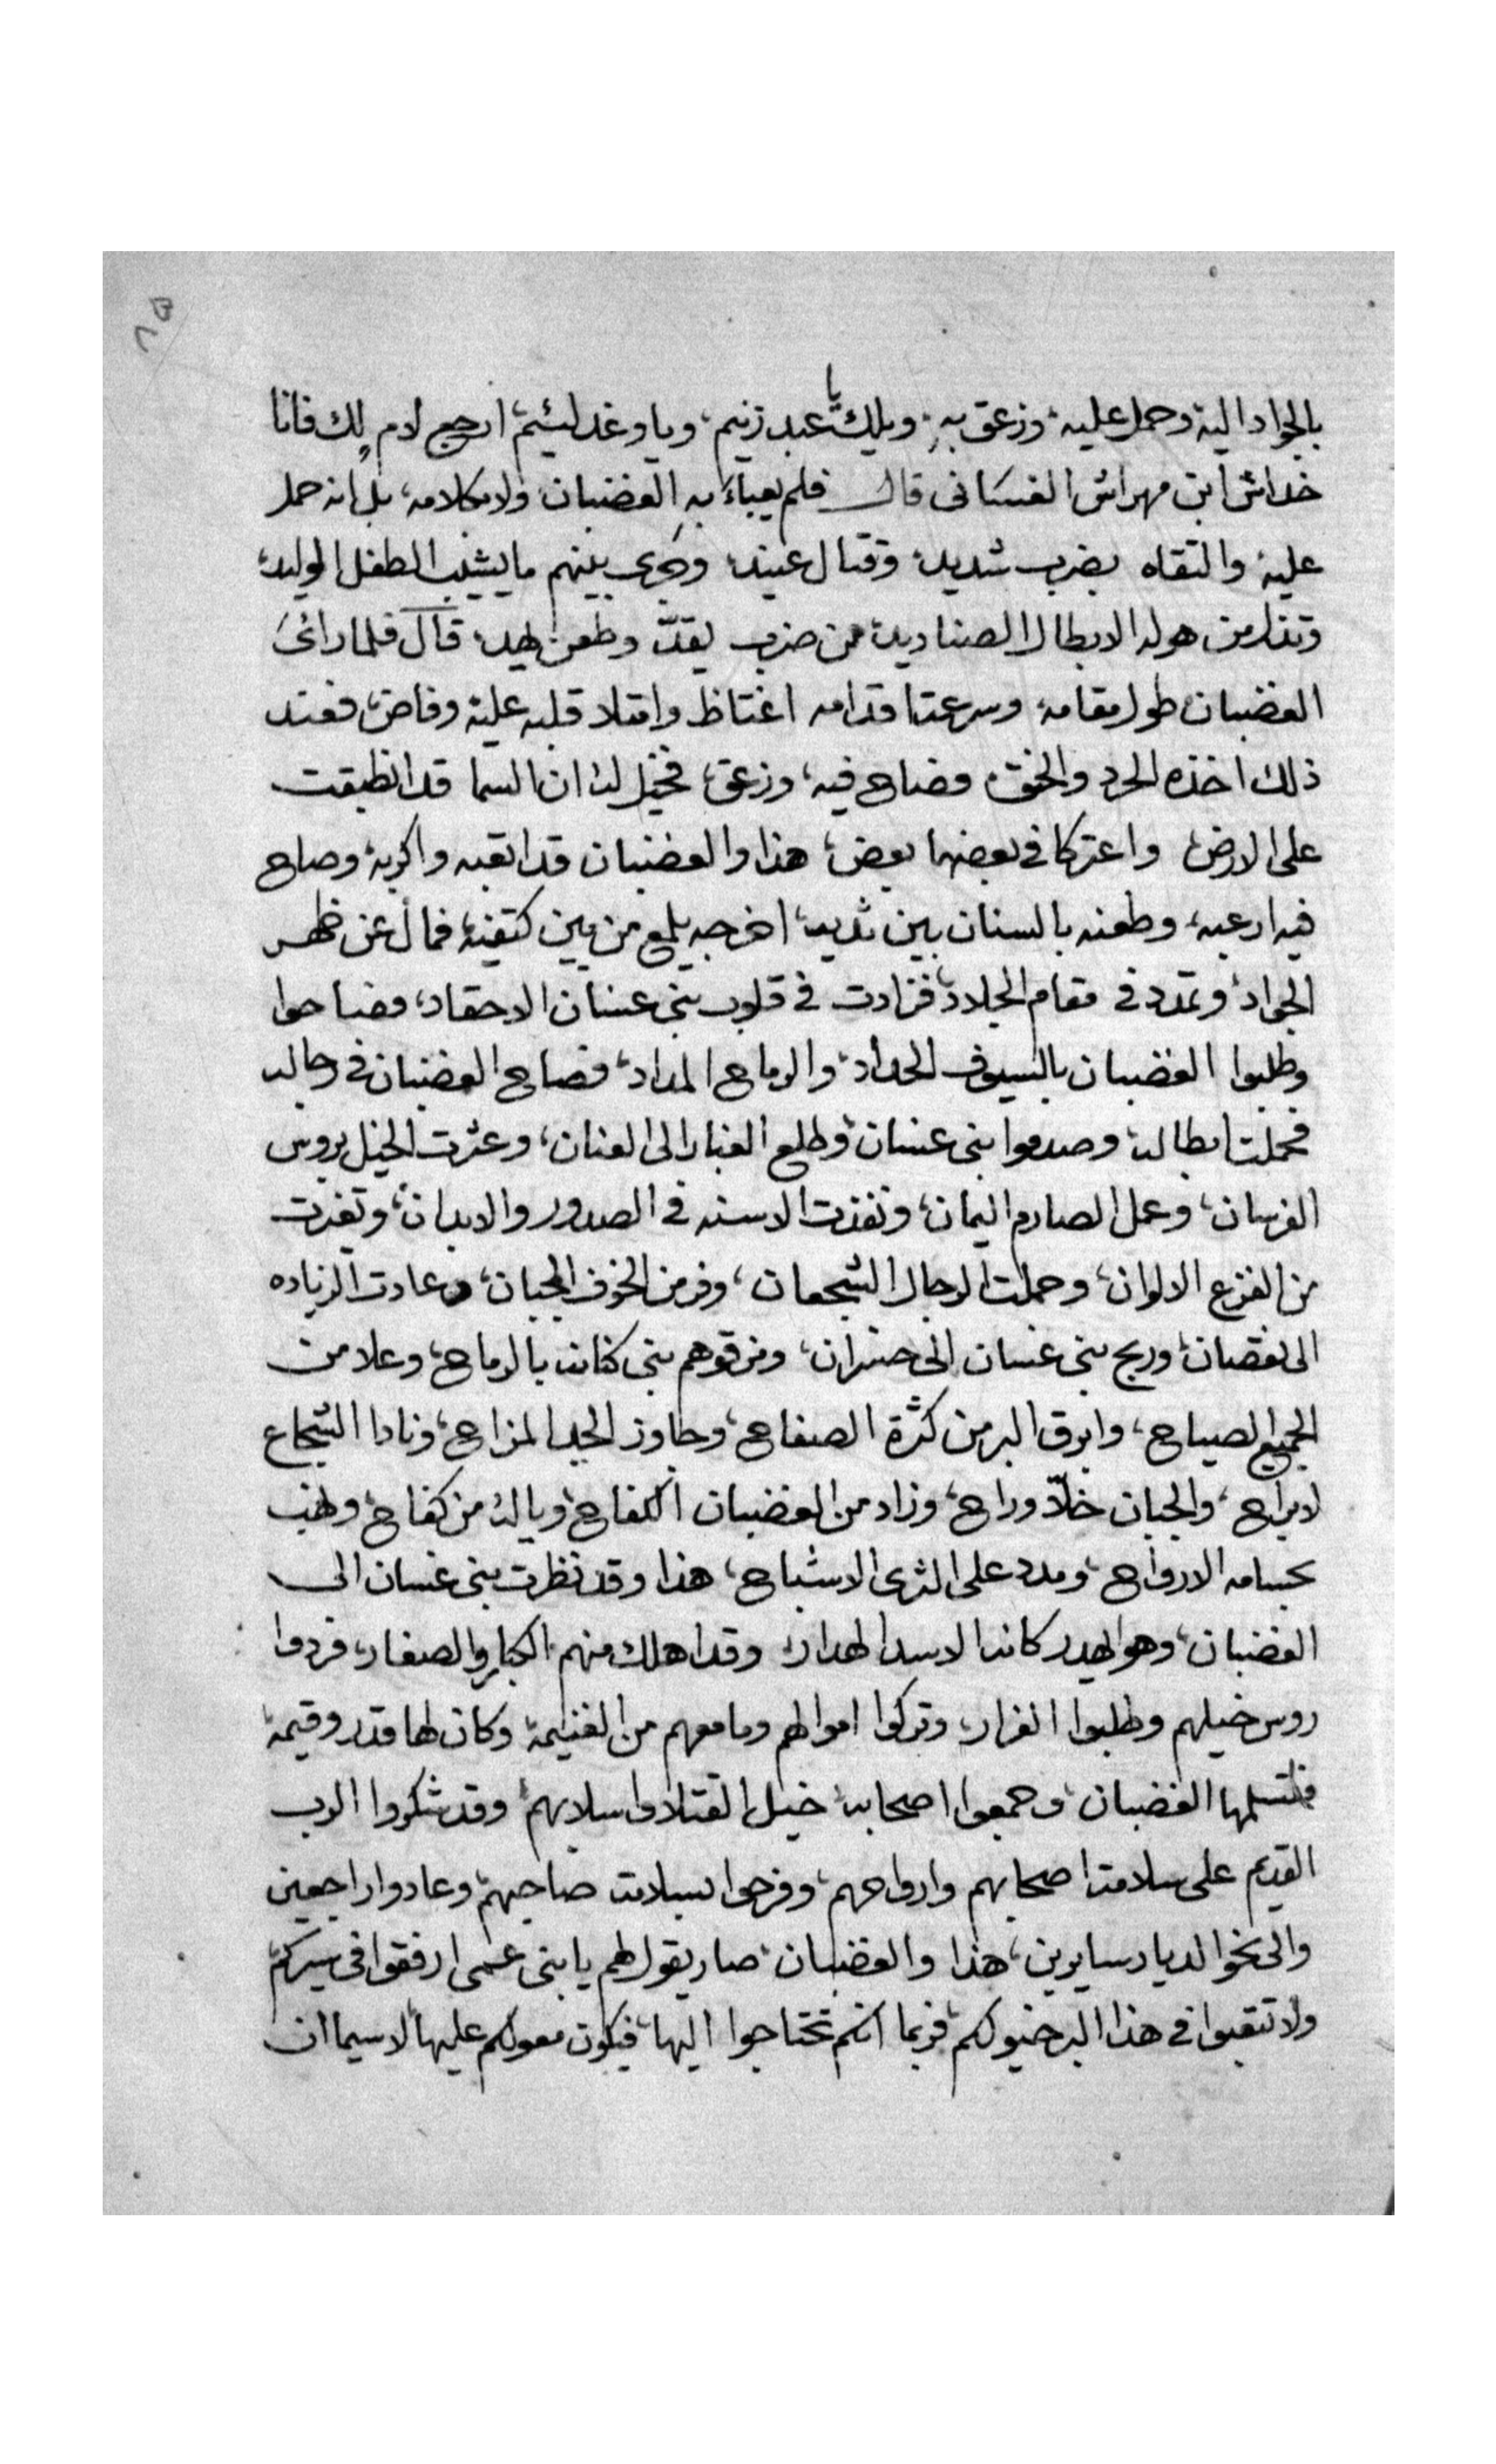 بالجواد اليه وحمل عليه، وزعق به، ويلك يا عبد زنيم، ويا وغد لئيم، ارجع لام لك فانا
خداش ابن مهراش الغسانى قال فلم يعباء به الغضبان ولا بكلامه، بل انه حمل
عليه والتقاه بضرب شديد، وقتال عنيد، وجرى بينهم ما يشيب الطفل الوليد،
من هوله الابطال الصناديد، من ضرب يقدّ وطعن يهد، قال فلما رائ
الغضبان طول مقامه، وسرعت اقدامه اغتاظ وامتلا قلبه عليه وفاض، فعند
ذلك اخذه الحرد والحنق، وصاح فيه، وزعق، فخيل له ان السما قد انطبقت
على الارض، واعتركا فى بعضهما بعض، هذا والغضبان قد اتعبه واكربه، وصاح
فيه ارعبه، وطعنه بالسنان بين ثدييه، اخرجه يلمع من بين كتفيه، فمال عن ظهر
الجواد، وتمدد فى مقام الجلاد، فزادت فى قلوب بنى غسان الاحقاد، وصاحوا
وطلبوا الغضبان بالسيوف الحداد، والرماح المداد، فصاح الغضبان فى رجاله
فحملت ابطاله، وصدموا بنى غسان، وطلع الغبار الى العنان، وعثرت الخيل بروس
الفرسان، وعمل الصارم اليمان، ونفذت الاسنه فى الصدور والابدان، وتغيرت
من الفزع الالوان، وحملت الرجال الشجعان، وفر من الخوف الجبان، وعادت الزياده
الى نقصان، وربح بنى غسان الى خسران، ومزقوهم بنى كنانه بالرماح، وعلا من
الجميع الصياح، وابرق البر من كثرة الصفاح، وجاوز الجد المزاح، ونادا الشجاع
لا براح، والجبان خلاّ وراح، وزاد من الغضبان الكفاح، وياله من كفاح، ونهب
بحسامه الارواح، ومدد على الثرى الاشباح، هذا وقد نظرت بنى غسان الى
الغضبان، وهو يهدر كانه الاسد الهدار، وقد اهلك منهم الكبار والصغار، فردوا
روس خيلهم وطلبوا الفرار، وتركوا اموالهم وما معهم من الغنيمة، وكان لها قدر وقيمة،
فتسلمها الغضبان، وجمعوا اصحابه، خيل القتلا واسلابهم، وقد شكروا الرب
القديم على سلامت اصحابهم وارواحهم، وفرحوا بسلامت صاحبهم، وعادوا راجعين
والى نحو الديار سايرين، هذا والغضبان، صار يقول لهم يا بنى عمى ارفقوا فى سيركم،
ولا تتعبوا فى هذا البر خيولكم، فربما انكم تحتاجوا اليها، فيكون معولكم عليها، لا سيما ان